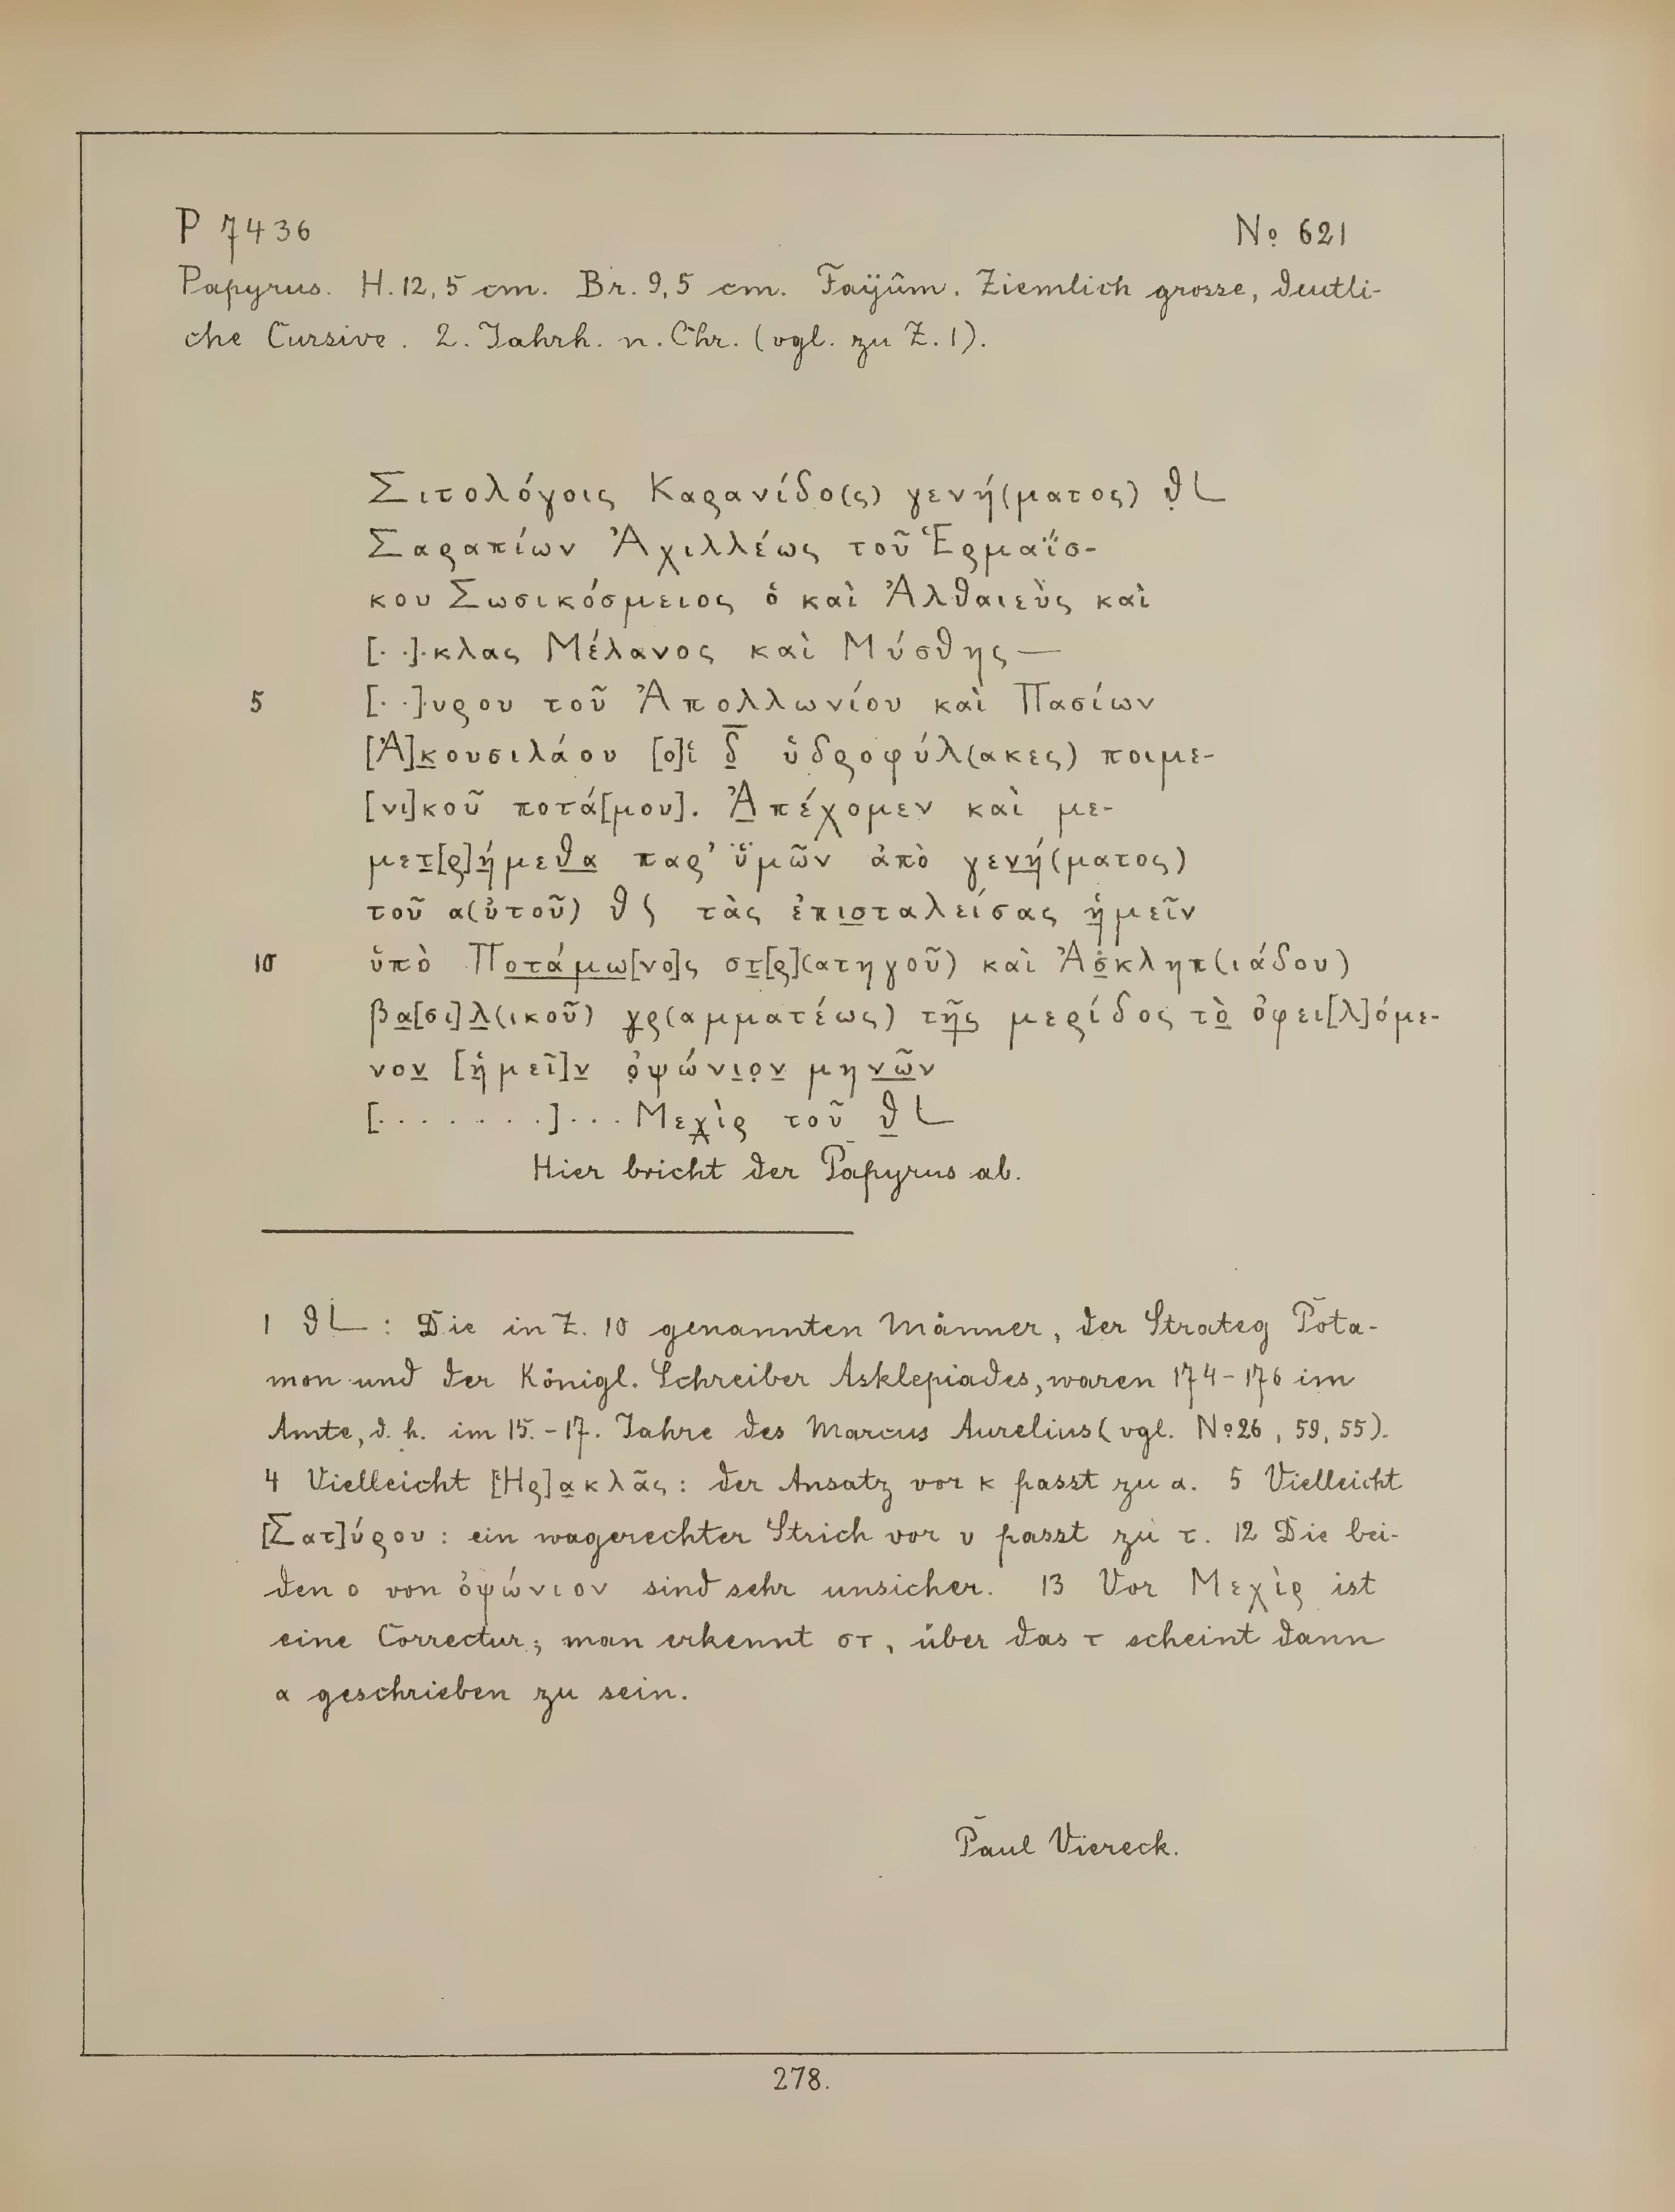 P 7436 Nº 621
Papyrus. H. 12,5 cm. Br. 9,5 cm. Faijûm. Ziemlich grosse, deutli-
che Cursive. 2. Jahrh. n. Chr. (vgl. zu Z. 1).
Σιτολόγοις Καρανίδο(ς) γενή(ματος) θ̣ L
Σαραπίων Ἀχιλλέως τοῦ Ἑρμαΐσ-
κου Σωσικόσμειος ὁ καὶ Ἀλθαιεὺς καὶ
[· ·]·κλας Μέλανος καὶ Μύσθης —
5 [· ·]υρου τοῦ Ἀπολλωνίου καὶ Πασίων
[Ἀ]κ̲ουσιλάου [ο]ἱ δ̲̅ ὑδροφύλ(ακες) ποιμε-
[νι]κοῦ ποτά[μου]. Ἀ̲πέχομεν καὶ με-
μετ̲[ρ]ή̲μεθ̲α̲ παρ’ ὑ̈μῶν ἀπὸ γεν̲ή̲(ματος)
τοῦ α(ὐτοῦ) θ ϛ τὰς ἐπισ̲ταλείσας ἡ̲μεῖν
10 ὑπὸ Πο̲τ̲ά̲μ̲ω̲[νο]ς στ̲[ρ](ατηγοῦ) καὶ Ἀσ̲κληπ(ιάδου)
βα̲[σι]λ̲(ικοῦ) γ̲ρ(αμματέως) τῆ̲ς̲ μερίδος τὸ̲ ὀφει[λ]όμε-
νον̲ [ἡμεῖ]ν̲ ὀ̣ψώνι̲ο̣ν̲ μην̲ῶ̲ν
[· · · · · · ·]· · · Μεχ̲ὶρ τοῦ θ̲ L
Hier bricht der Papyrus ab.
1 θ L : Die in Z. 10 genannten Männer, der Strateg Pota-
mon und der Königl. Schreiber Asklepiades, waren 174-176 im
Amte, d. h. im 15.-17. Jahre des Marcus Aurelius (vgl. Nº 26, 59, 55).
4 Vielleicht [Ἡρ]α̲κλᾶς : der Ansatz vor κ passt zu α. 5 Vielleicht
[Σατ]ύρου : ein wagerechter Strich vor υ passt zu τ. 12 Die bei-
den ο von ὀψώνιον sind sehr unsicher. 13 Vor Μεχὶρ ist
eine Correctur; man erkennt στ, über das τ scheint dann
α geschrieben zu sein.
Paul Viereck.
278.